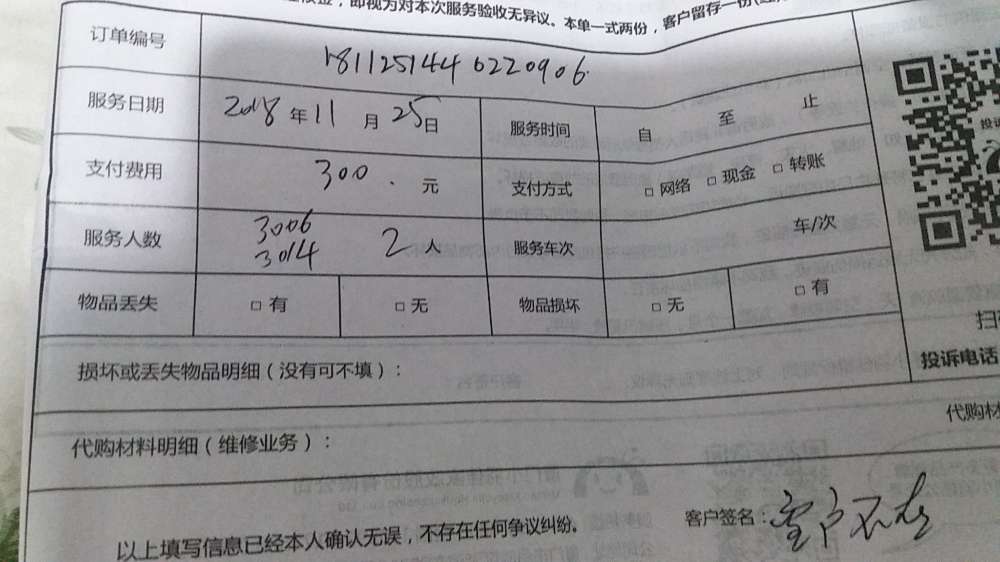 即视为对本次服务验收无异议。本单一式两份，客户留存一份
订单编号 181125144 0220906
服务日期 2018 年 11 月 25 日 服务时间 自 至 止
支付费用 300 . 元 支付方式 □ 网络 □ 现金 □ 转账
服务人数 3006 3014 2 人 服务车次 车/次
物品丢失 □ 有 □ 无 物品损坏 □ 无 □ 有
损坏或丢失物品明细（没有可不填）：
投诉电话
代购材料明细（维修业务）：
代购材
以上填写信息已经本人确认无误，不存在任何争议纠纷。
客户签名：客户不在